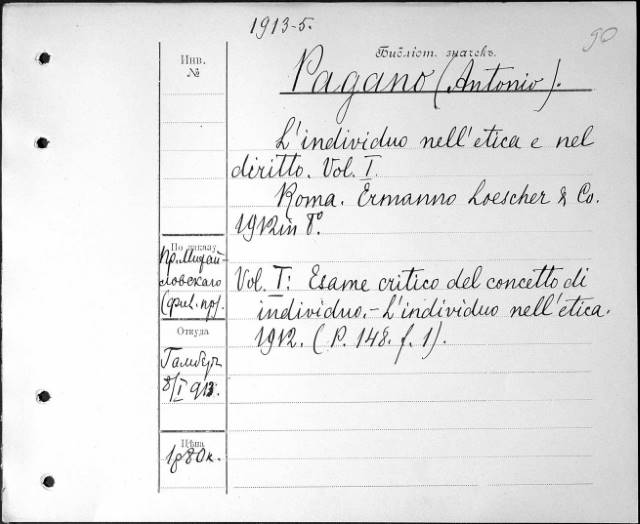 1913-5.
90
Библіот. значекъ.
Инв.
№
Pagano (Antonio).
L'individuo nell'etica e nel
diritto. Vol. I.
Roma. Ermanno Loescher & Co.
1912 in 8°
По заказу
пр. Михай-
ловскаго
(фил. пр).
Vol. I: Esame critico del concetto di
individuo. - L'individuo nell'etica.
1912. (P. 148. f. 1).
Откуда
8/I 913.
Цѣна
1р80к.